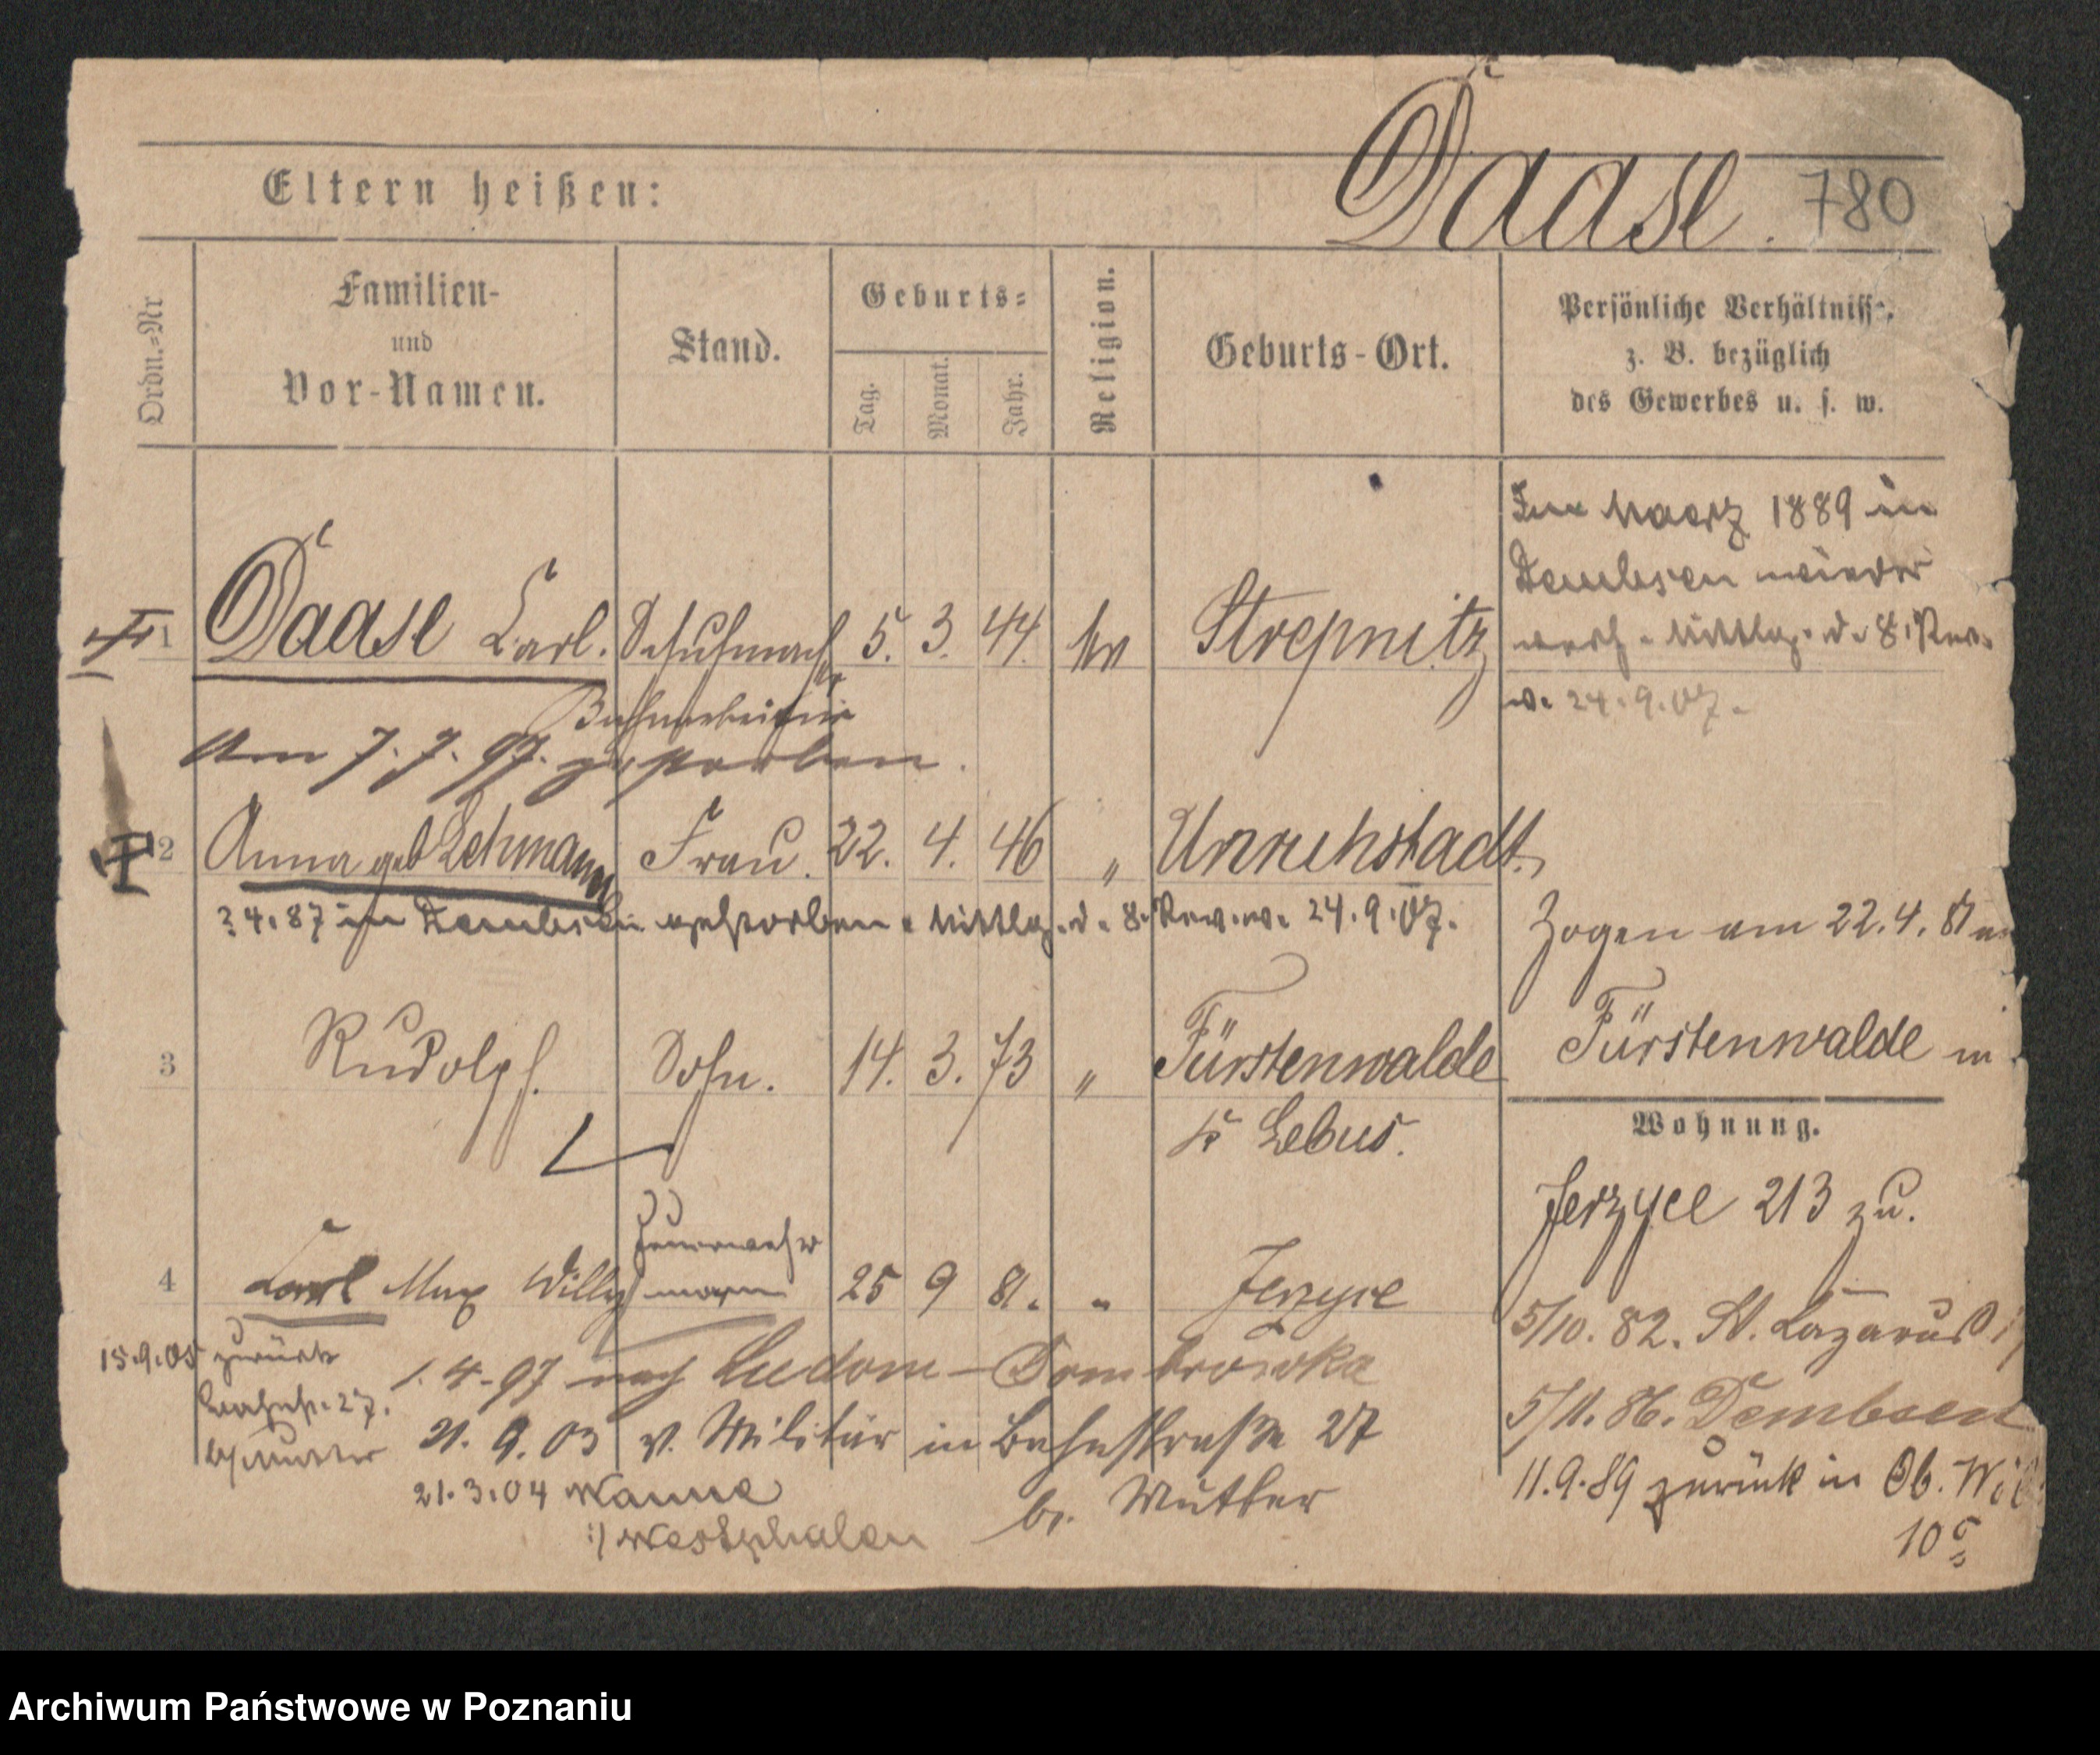 Daase. 780
Eltern heißen:
Ordn.=Nr
Familien-
und
Vor-Namen.
Stand.
Geburts=
Tag.
Monat.
Jahr.
Religion.
Geburts-Ort.
Persönliche Verhältnisse,
z. B. bezüglich
des Gewerbes u. s. w.
1 Daase Carl. Schuhmacher 5. 3. 44. Strepnitz
Bahnarbeiter
Am 7. 7. 97. gestorben.
Im Maerz 1889 in
Dembsen wieder
Mittlg. d. 8. Rev.
v. 24.9.07.
2 Anna geb Lehmann Frau. 22. 4. 46 „ Unruhstadt.
4.87 in Dembsen gestorben. Mittlg. d. 8. Rev. v. 24.9.07.
Zogen am 22.4.81
Fürstenwalde
3 Rudolph. Sohn. 14. 3. 73 „ Fürstenwalde
Kr Lebus.
Wohnung.
Jerzyce 213 zu.
4 Carl Max Willy Feuerwehr
mann 25 9 81. „ Jerzyce
5/10. 82. St. Lazarus
15.9.05 zurück
1.4.97 nach Ludom-Dombrowka
Bahnh. 27.
b/Mutter
5/11. 86. Dembsen
21.9.03 v. Militär in Bahnstraße 27
br. Mutter
21.3.04 Wanne
i/Westphalen
11.9.89 zurück in Ob. Wil
10
Archiwum Państwowe w Poznaniu